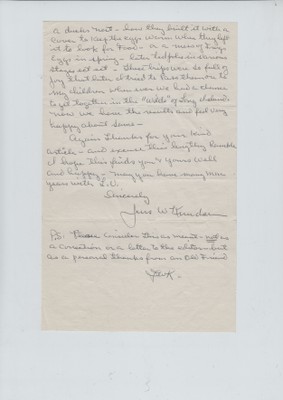 a ducks nest - how they built it with a
cover to keep the eggs warm when they left
it to look for food - or a mess of frogs
eggs in spring - later tadpoles in various
stages
joy that later I tried to pass them on to
my children when ever we had a chance
to get together in the "wilds" of Long Island
now we have the results and feel very
happy about same -
Again thanks for your kind
article - and excuse this lengthy ramble
I hope this finds you & yours well
and happy - may you have many more
years with
Sincerely
Jess W
P.S. Please consider this as meant - not as
a correction or a letter to the editor - but
as a personal thanks from an old friend